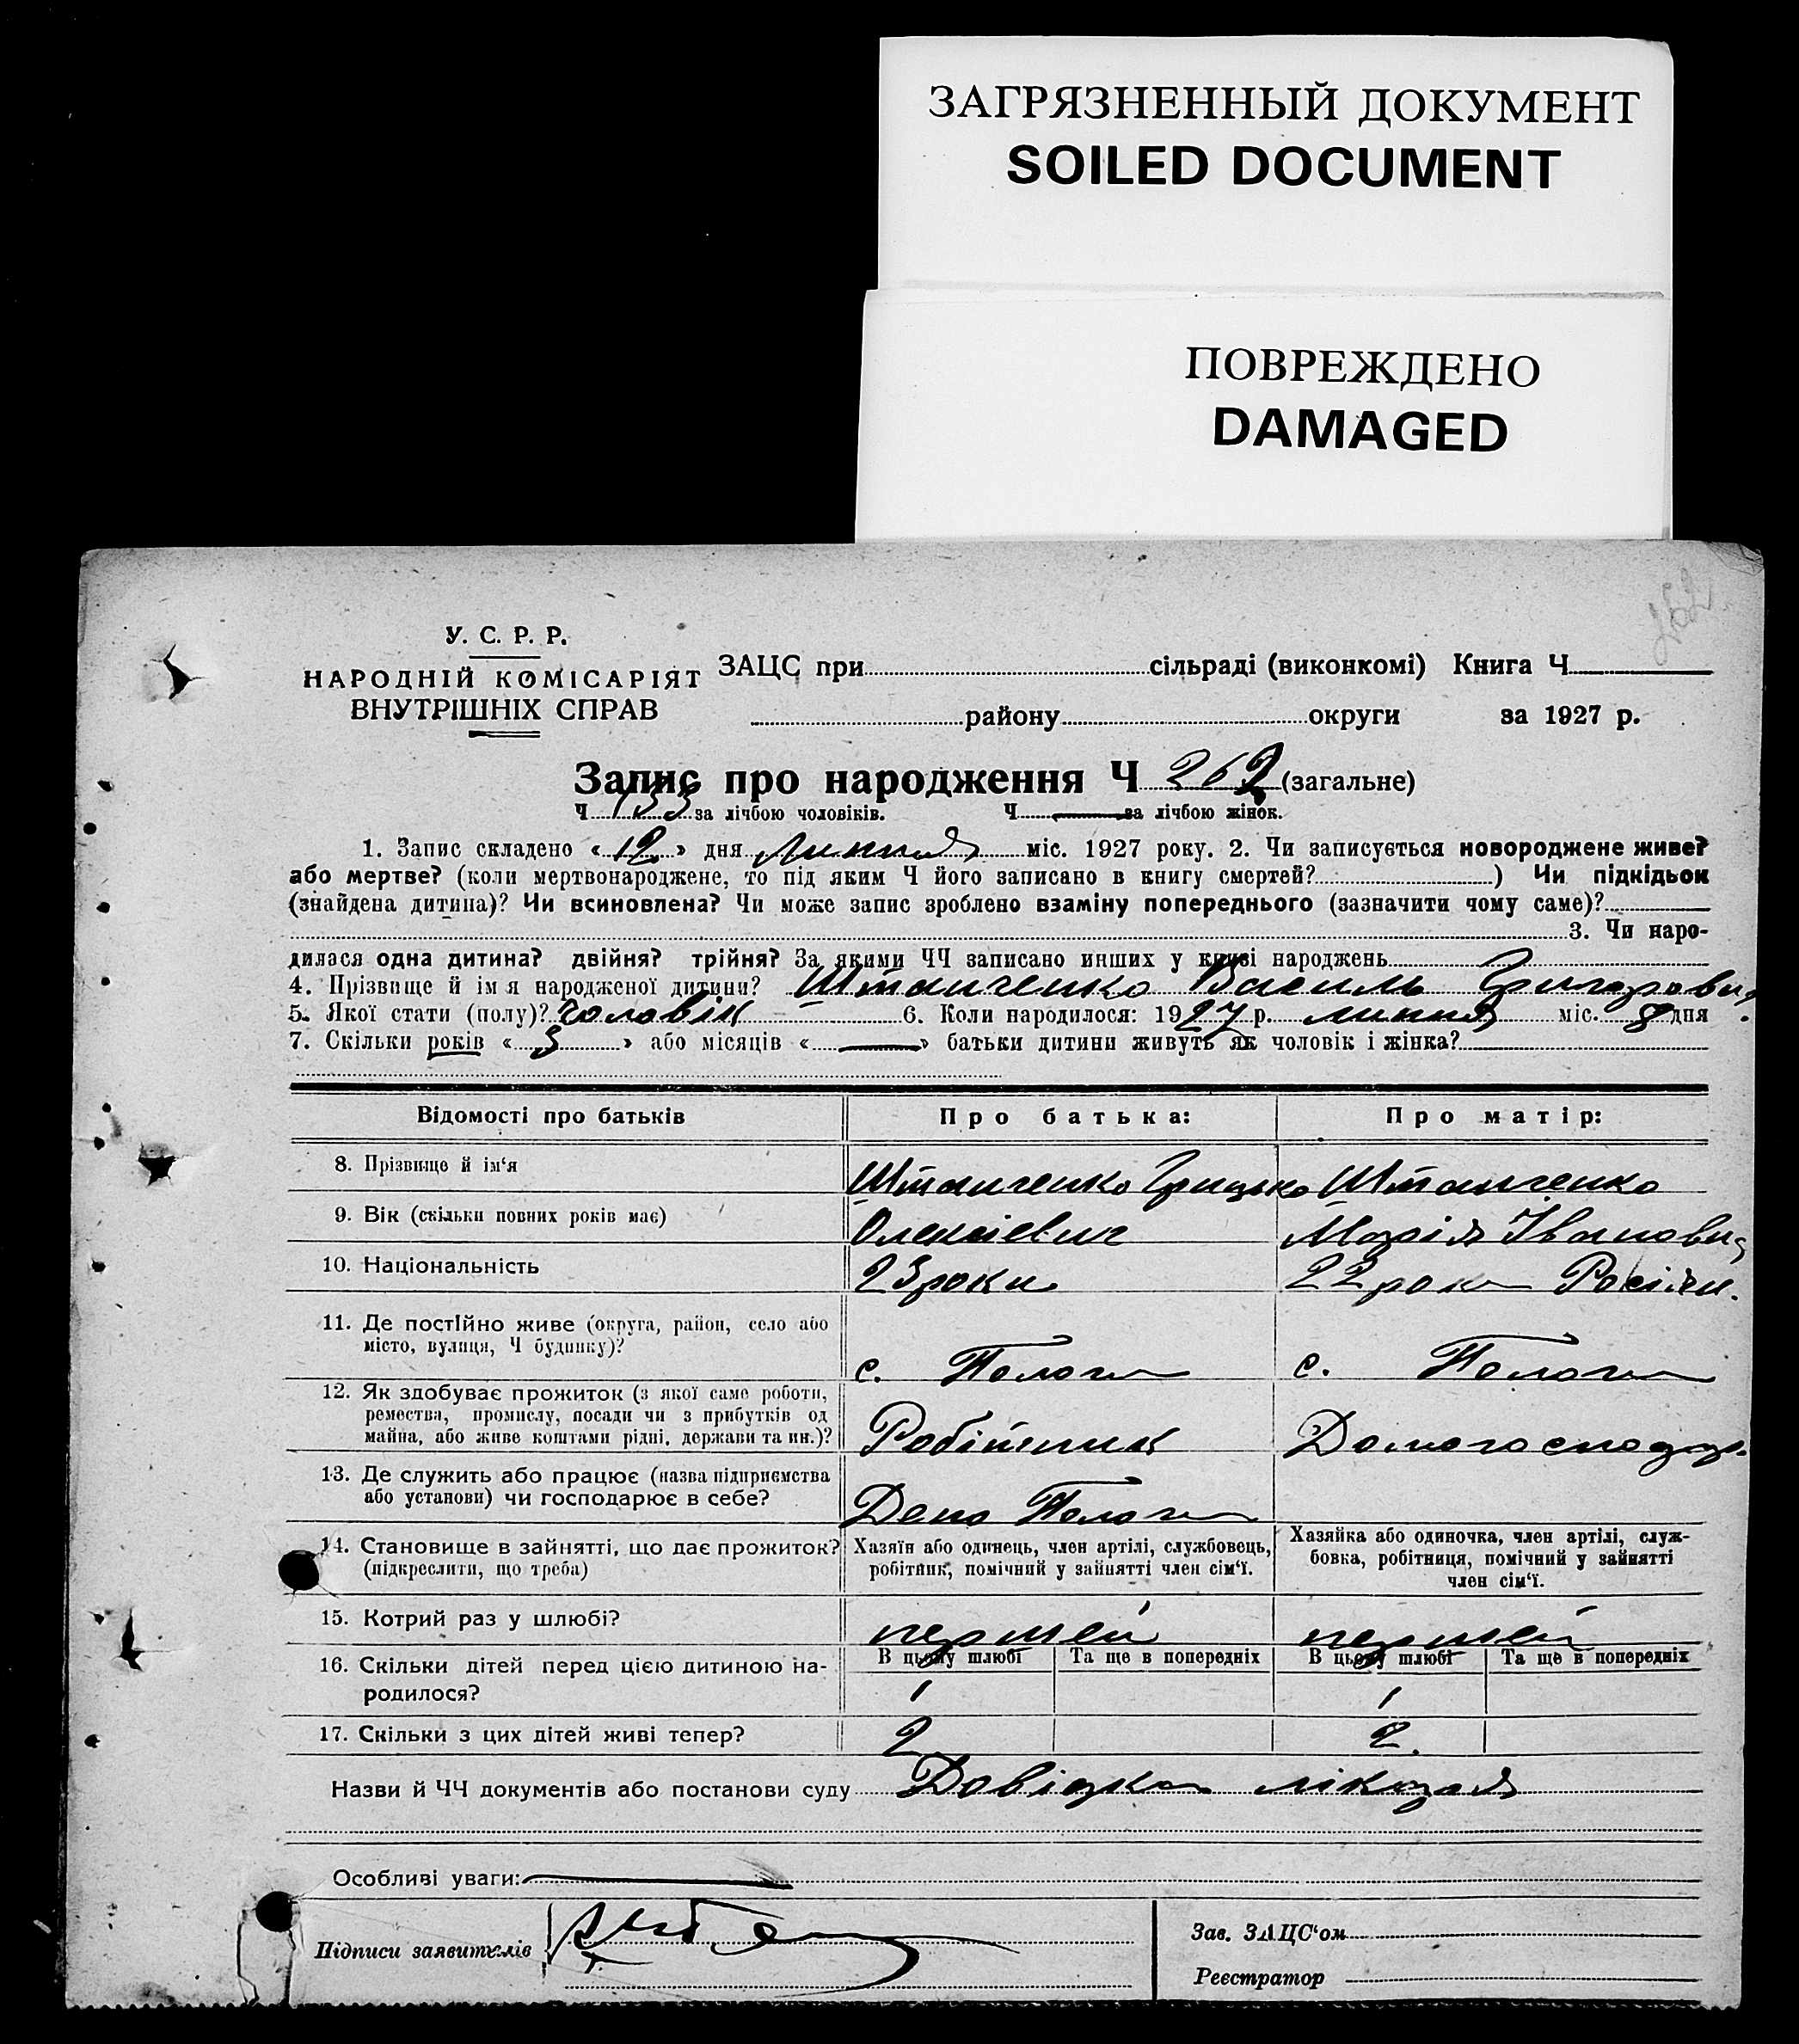 ЗАГРЯЗНЕННЫЙ ДОКУМЕНТ
SOILED DOCUMENT
ПОВРЕЖДЕНО
DAMAGED
У. С. Р. Р.
НАРОДНІЙ КОМІСАРІЯТ
ВНУТРІШНІХ СПРАВ
ЗАЦС при сільраді (виконкомі) Книга Ч
району округи за 1927 р.
Запис про народження Ч 262 (загальне)
Ч 133 за лічбою чоловіків. Ч — за лічбою жінок.
1. Запис складено « 12 » дня Липня міс. 1927 року. 2. Чи записується новороджене живе?
або мертве? (коли мертвонароджене, то під яким Ч його записано в книгу смертей? ) Чи підкідьок
(знайдена дитина)? Чи всиновлена? Чи може запис зроблено взаміну попереднього (зазначити чому саме)?
3. Чи наро-
дилася одна дитина? двійня? трійня? За якими ЧЧ записано инших у книзі народжень
4. Прізвище й ім я народженої дитини? Штанченко Василь Григорович
5. Якої стати (полу)? Чоловік 6. Коли народилося: 1927 р. липня міс. 8 дня
7. Скільки років « 3 » або місяців « — » батьки дитини живуть як чоловік і жінка?
Відомості про батьків Про батька: Про матір:
8. Прізвище й ім'я Штанченко Грицько Штанченко
9. Вік (скільки повних років має) Олексієвич Марія Іванович
10. Національність 23 роки 22 рок Росіян.
11. Де постійно живе (округа, район, село або
місто, вулиця, Ч будинку)? с. Пологи с. Пологи
12. Як здобуває прожиток (з якої саме роботи,
ремества, промислу, посади чи з прибутків од
майна, або живе коштами рідні, держави та ин.)? Робітник Домогосподар.
13. Де служить або працює (назва підприємства
або установи) чи господарює в себе? Депо Пологи
14. Становище в зайнятті, що дає прожиток?
(підкреслити, що треба)
Хазяїн або одинець, член артілі, службовець,
робітник, помічний у зайнятті член сім'ї.
Хазяйка або одиночка, член артілі, служ-
бовка, робітниця, помічний у зайнятті
член сім'ї.
15. Котрий раз у шлюбі? першей першей
16. Скільки дітей перед цією дитиною на-
родилося?
В цьому шлюбі Та ще в попередніх В цьому шлюбі Та ще в попередніх
1 1
17. Скільки з цих дітей живі тепер? 2 2.
Назви й ЧЧ документів або постанови суду Довідка лікаря
Особливі уваги: —
Підписи заявителів
Зав. ЗАЦС'ом
Реєстратор